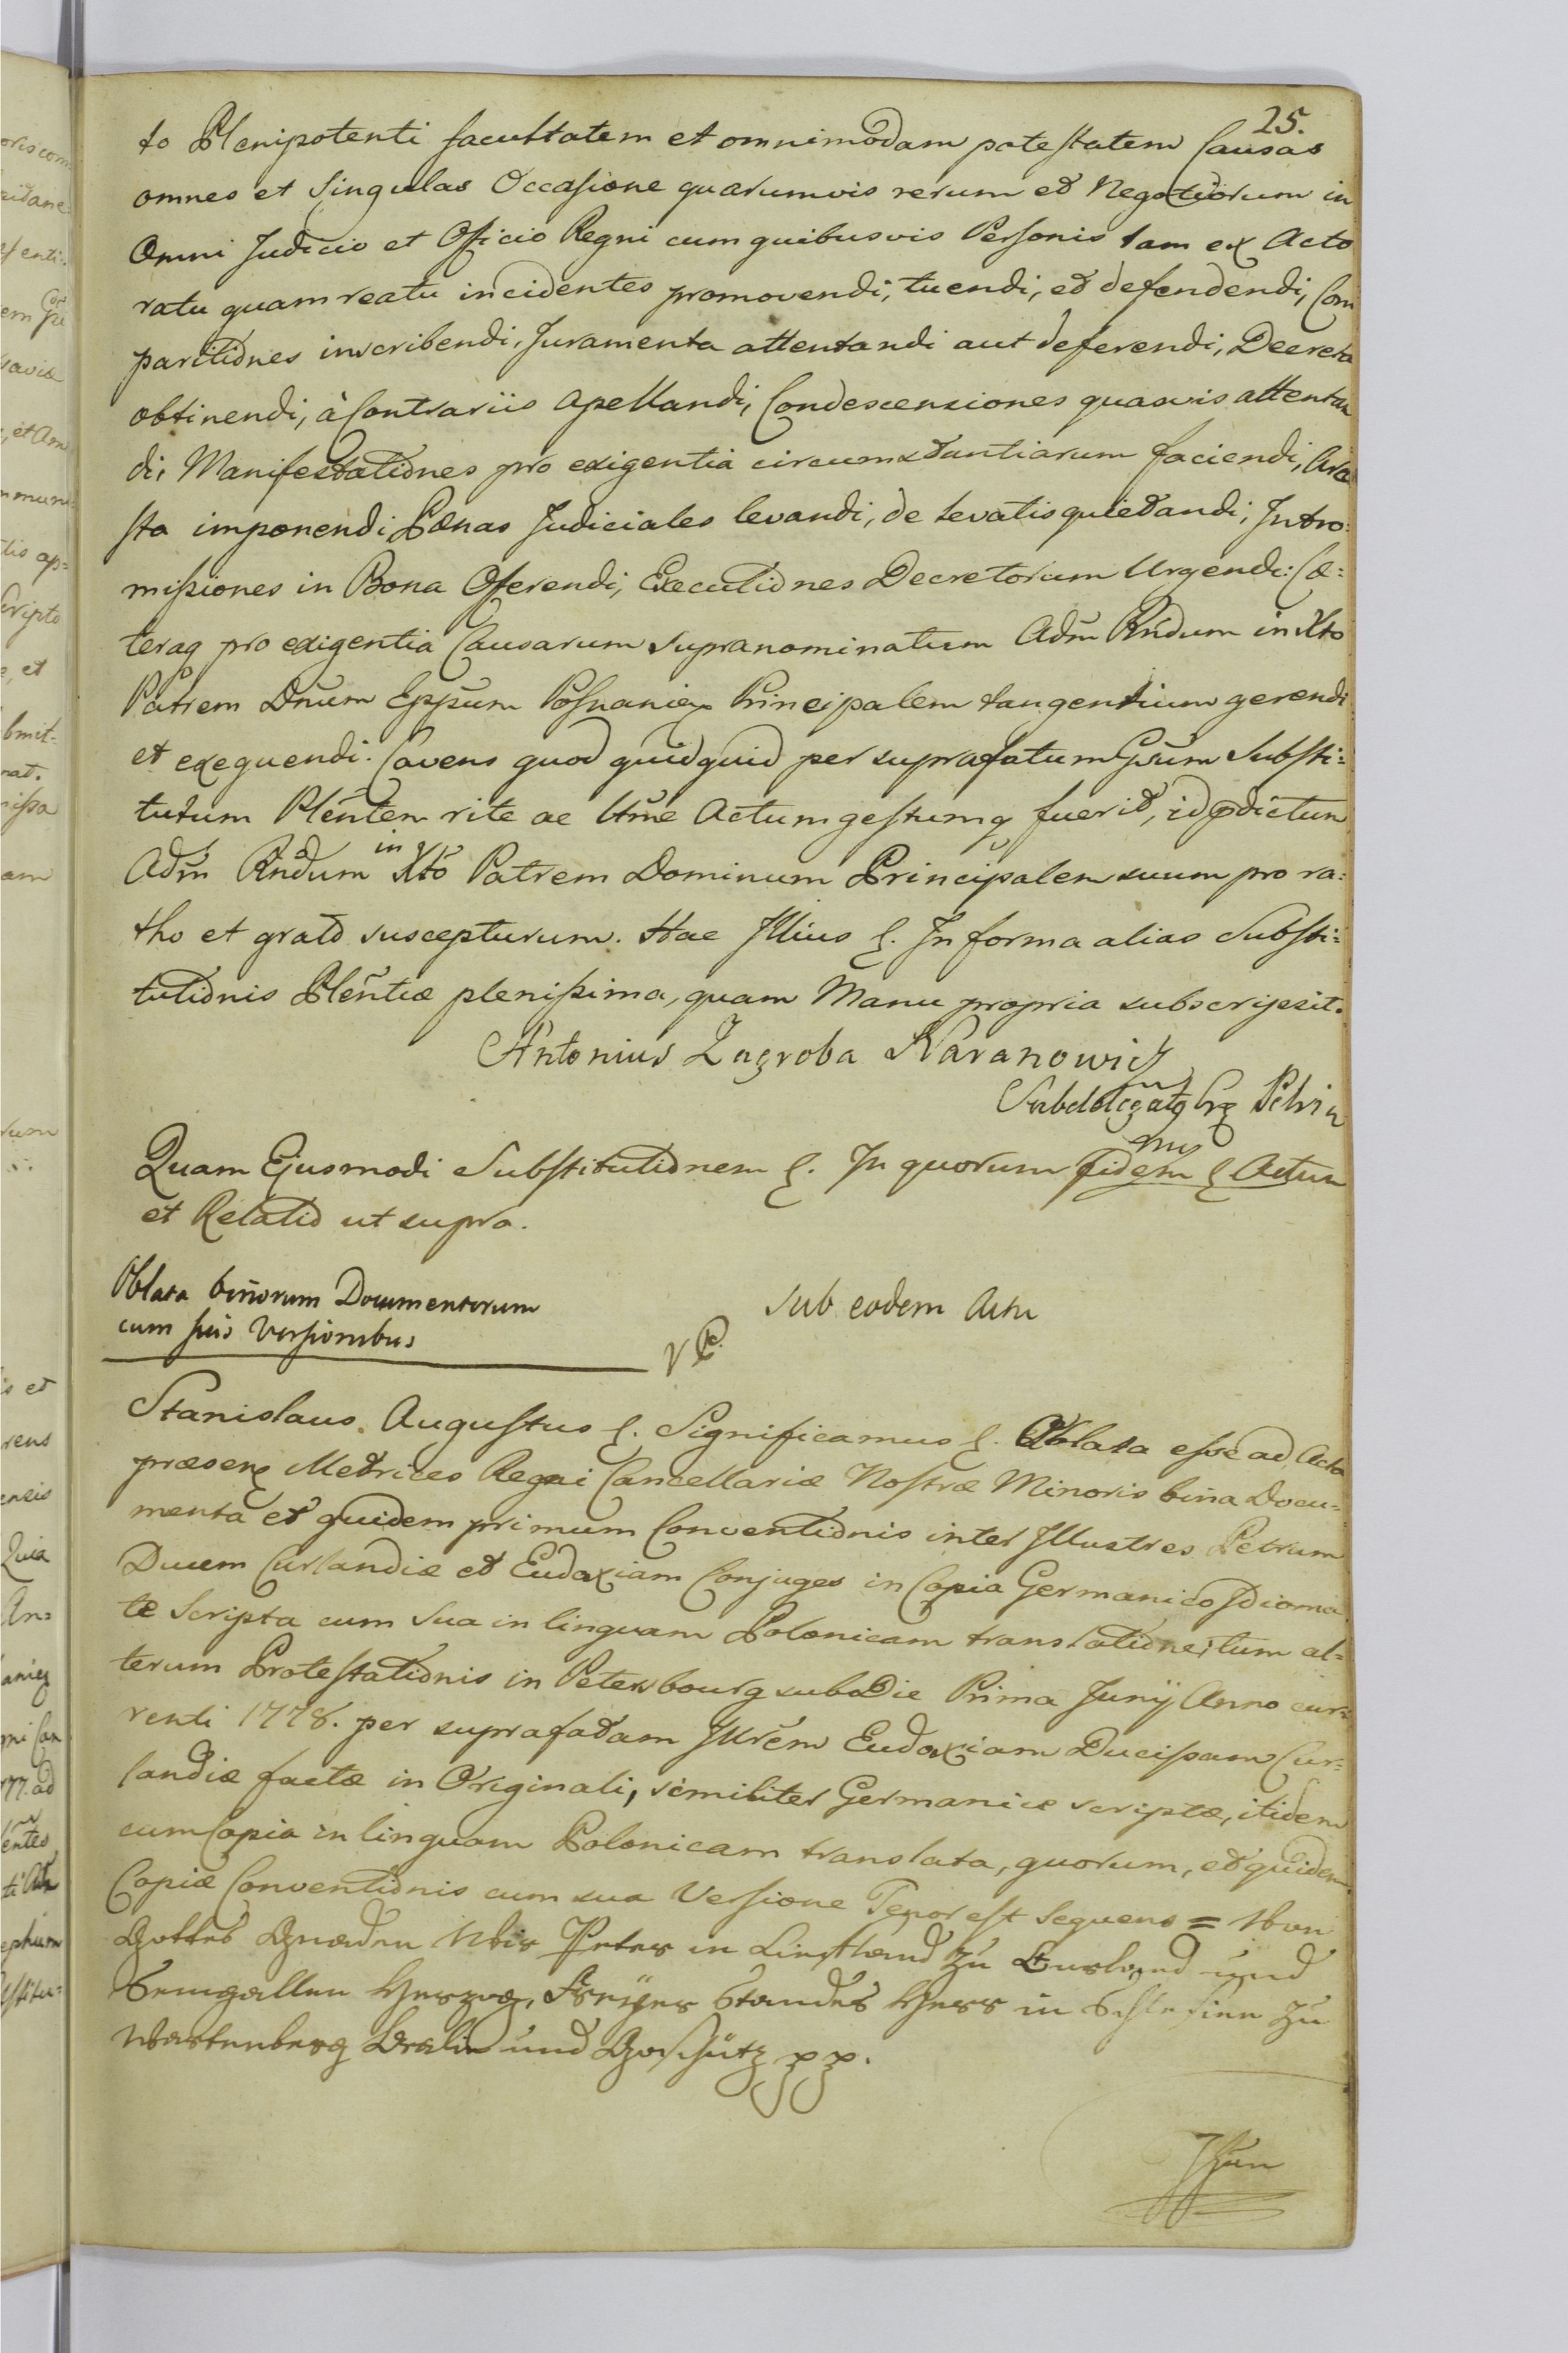 25.
to Plenipotenti facultatem et omnimodam potestatem Causas
omnes et Singulas Occasione quarumvis rerum et Negotiorum in
Omni Judicio et Officio Regni cum quibusvis Personis tam ex Acto
ratu quam reatu incidentes promovendi, tuendi, et defendendi, Com
paritiones inscribendi, Juramenta attentandi aut deferendi, Decreta
obtinendi, à Contrariis Apellandi, Condescensiones quasvis attentan
di, Manifestationes pro exigentia circumstantiarum faciendi, Are
sta imponendi Pænas Judiciales levandi, de levatis quietandi, Intro:
missiones in Bona Offerendi, Executiones Decretorum Urgendi: Cæ:
teraq pro exigentia Causarum supranominatum Adm̃ Rńdum in Xto
Patrem Dnum Eppum Posnaniæ Principalem tangentium gerendi
et exequendi. Cavens quod quidquid per suprafatum Gsum Substi:
tutum Pleñten rite ac ltme Actum gestumq fuerit, id pdictum
Adm̃ Rndum in Xto Patrem Dominum Principalem suum pro ra:
tho et grato suscepturum. Hac Illius §. In forma alias Substi:
tutionis Pleñtiæ plenissima, quam Manu propria subscripsit.
Antonius Zagroba Karanowicz
Subdelegatq Crg
Quam Ejusmodi Substitutionem §. In quorum fidem § Actum
et Relatio ut supra.
Oblata binorum Documentorum
cum suis Versionibus
Sub eodem Actu
Stanislaus Augustus §. Significamus §. Oblata esse ad Acta
præsens Metrices Regni Cancellariæ Nostræ Minoris bina Docu=
menta et quidem primum Conventionis inter Illustres Petrum
Ducem Curlandiæ et Eudoxiam Conjuges in Copia Germanico Idioma
te Scripta cum Sua in linguam Polonicam translatione, tum al=
terum Protestationis in Petersbourg sub Die Prima Junij Anno cur=
renti 1778. per suprafatam Illrem Eudoxiam Ducissam Cur=
landiæ factæ in Originali, similiter Germanice scriptæ, itidem
cum Copia in linguam Polonicam translata, quorum, et quidem
Copiæ Conventionis cum sua Versione Tenor est Sequens = Von
Gottes Gnaden Wir Peter in Liefland zu Curland und
Semgallen Herzog, Freyer Standes Herr in Schlesien zu
Wartenberg Bralin und Goschütz pp.
Thun